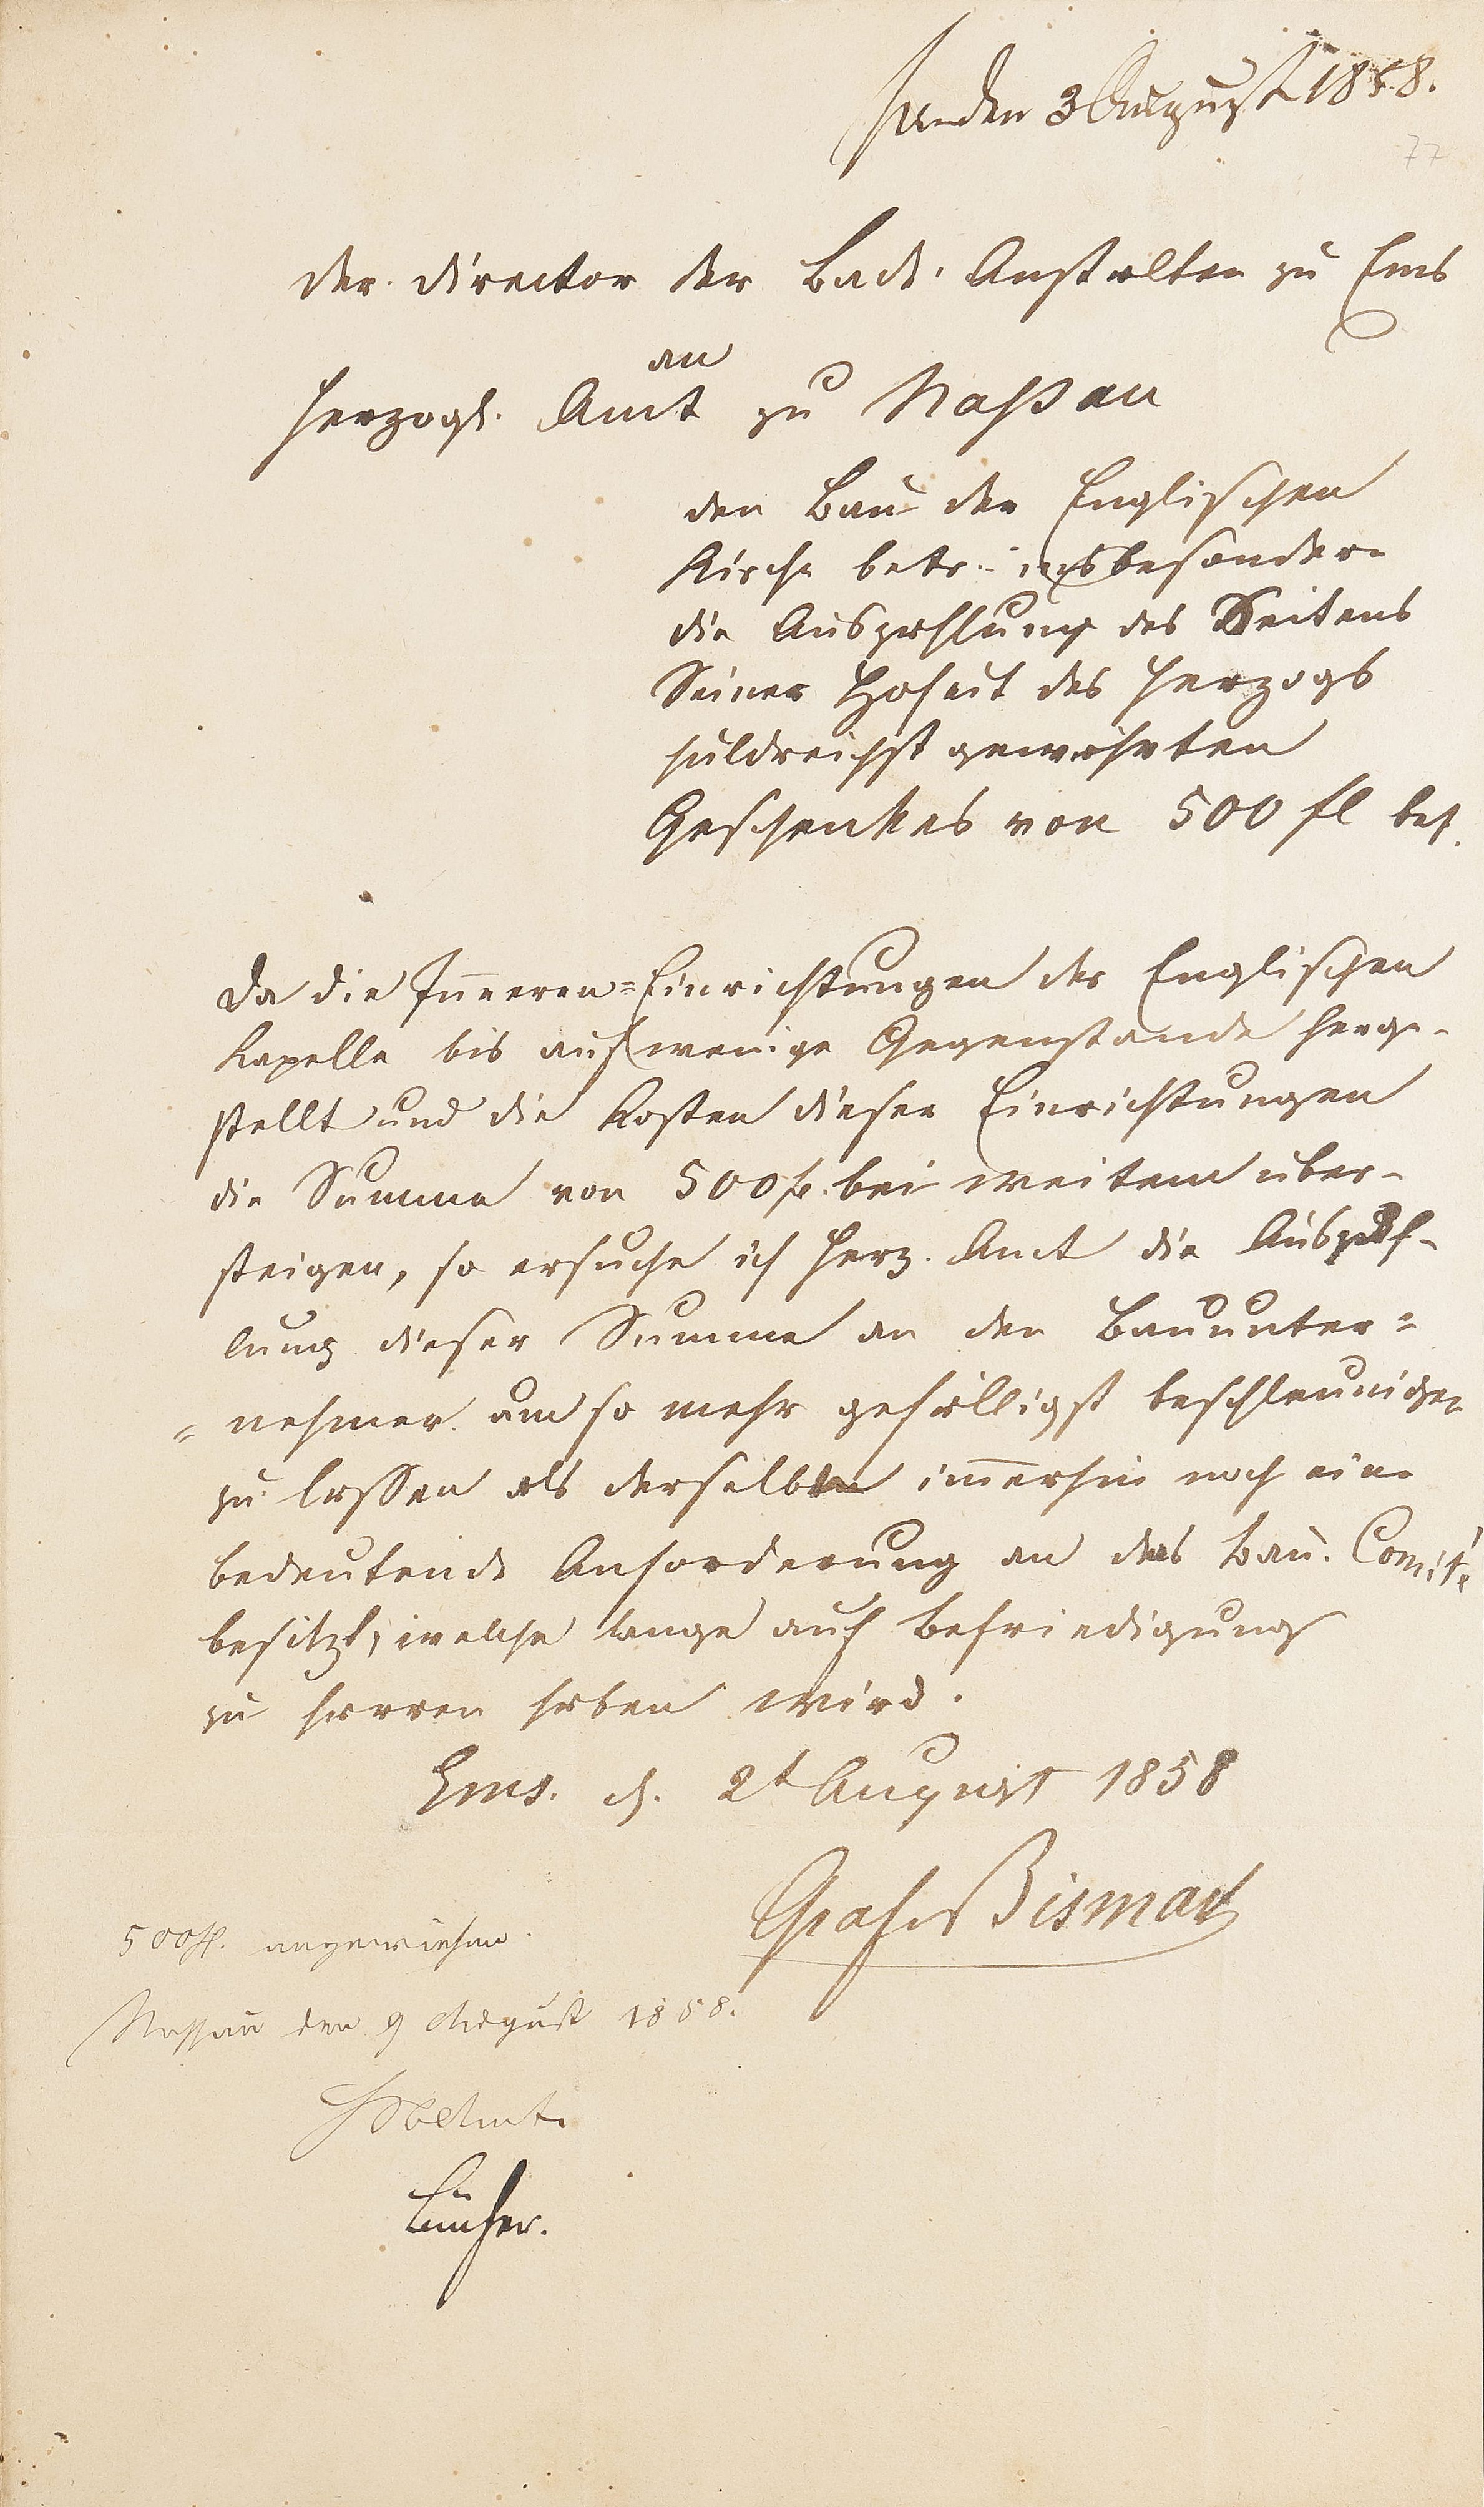 den 3 August 1858.
77
Der Director der Bade-Anstalten zu Ems
an
Herzogl. Amt zu Naßau
den Bau der Englischen
Kirche betr. insbesondere
die Auszahlung des Seitens
Seiner Hoheit des Herzogs
huldreichst gewährten
Geschenkes von 500 fl bet.
Da die Inneren-Einrichtungen der Englischen
Kapelle bis auf wenige Gegenstande herge-
stellt und die Kosten dieser Einrichtungen
die Summe von 500 fl. bei weitem über-
steigen, so ersuche ich Herz. Amt die Auszah-
lung dieser Summe an den Bauunter=
=nehmer um so mehr gefälligst beschleunigen
zu lassen als derselbe imerhin noch eine
bedeutende Anforderung an das Bau-Comité
besitzt, welche lange auf Befriedigung
zu harren haben wird.
Ems. d. 2t August 1858
Graf Bismark
500 fl. angewiesen.
Nassau den 9 August 1858.